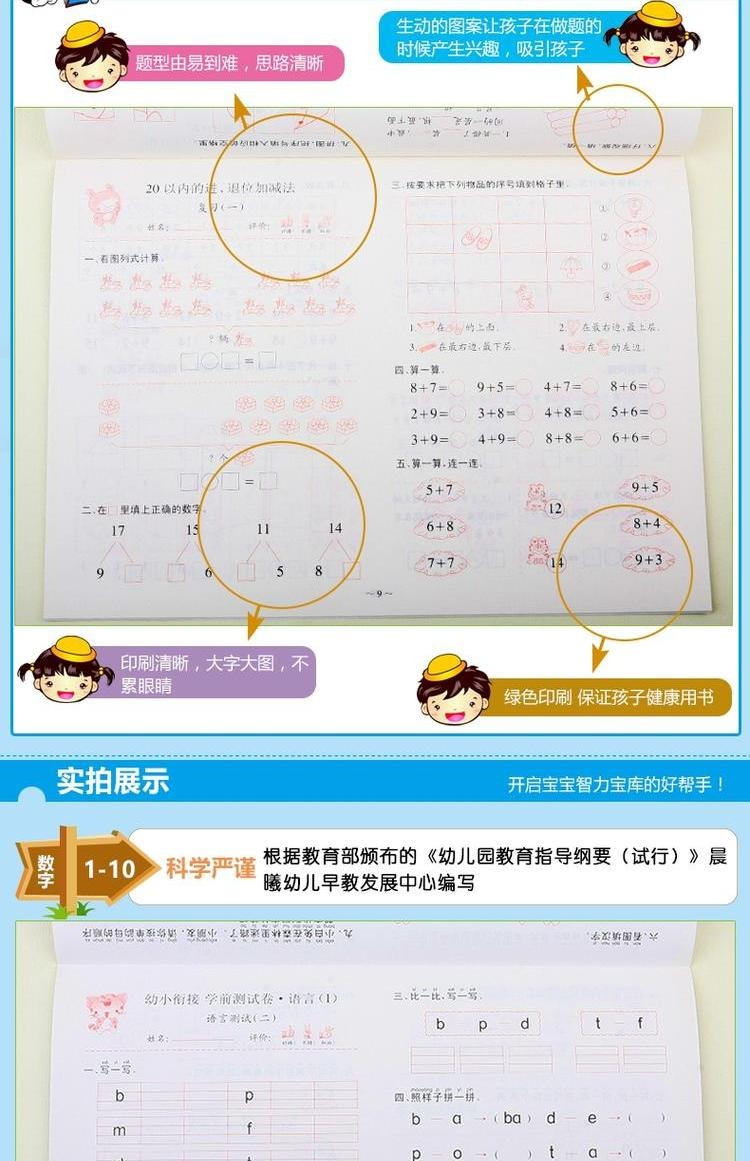 题型由易到难，思路清晰
生动的图案让孩子在做题的
时候产生兴趣，吸引孩子
20以内的进、退位加减法
复习(一)
姓名: 评价:
一.看图列式计算.
? 辆
□○□=□
? 个
□○□=□
二.在□里填上正确的数字.
17 15 11 14
9 □ □ 6 □ 5 8 □
三.按要求把下列物品的序号填到格子里.
①
②
③
④
1. 在 的上面. 2. 在最右边,最上层.
3. 在最右边,最下层. 4. 在 的左边.
四.算一算.
8+7=○ 9+5=○ 4+7=○ 8+6=○
2+9=○ 3+8=○ 4+8=○ 5+6=○
3+9=○ 4+9=○ 8+8=○ 6+6=○
五.算一算,连一连.
5+7 9+5
12
6+8 8+4
7+7 14 9+3
~9~
印刷清晰，大字大图，不
累眼睛
绿色印刷 保证孩子健康用书
实拍展示
开启宝宝智力宝库的好帮手！
数字
1-10
科学严谨
根据教育部颁布的《幼儿园教育指导纲要（试行）》晨
曦幼儿早教发展中心编写
六.看图填汉字.
幼小衔接 学前测试卷·语言(1)
语言测试(二)
姓名: 评价:
一.写一写.
b p
m f
三.比一比,写一写.
b p d t f
四.照样子拼一拼.
b a →(ba) d e →( )
p o →( ) t a →( )